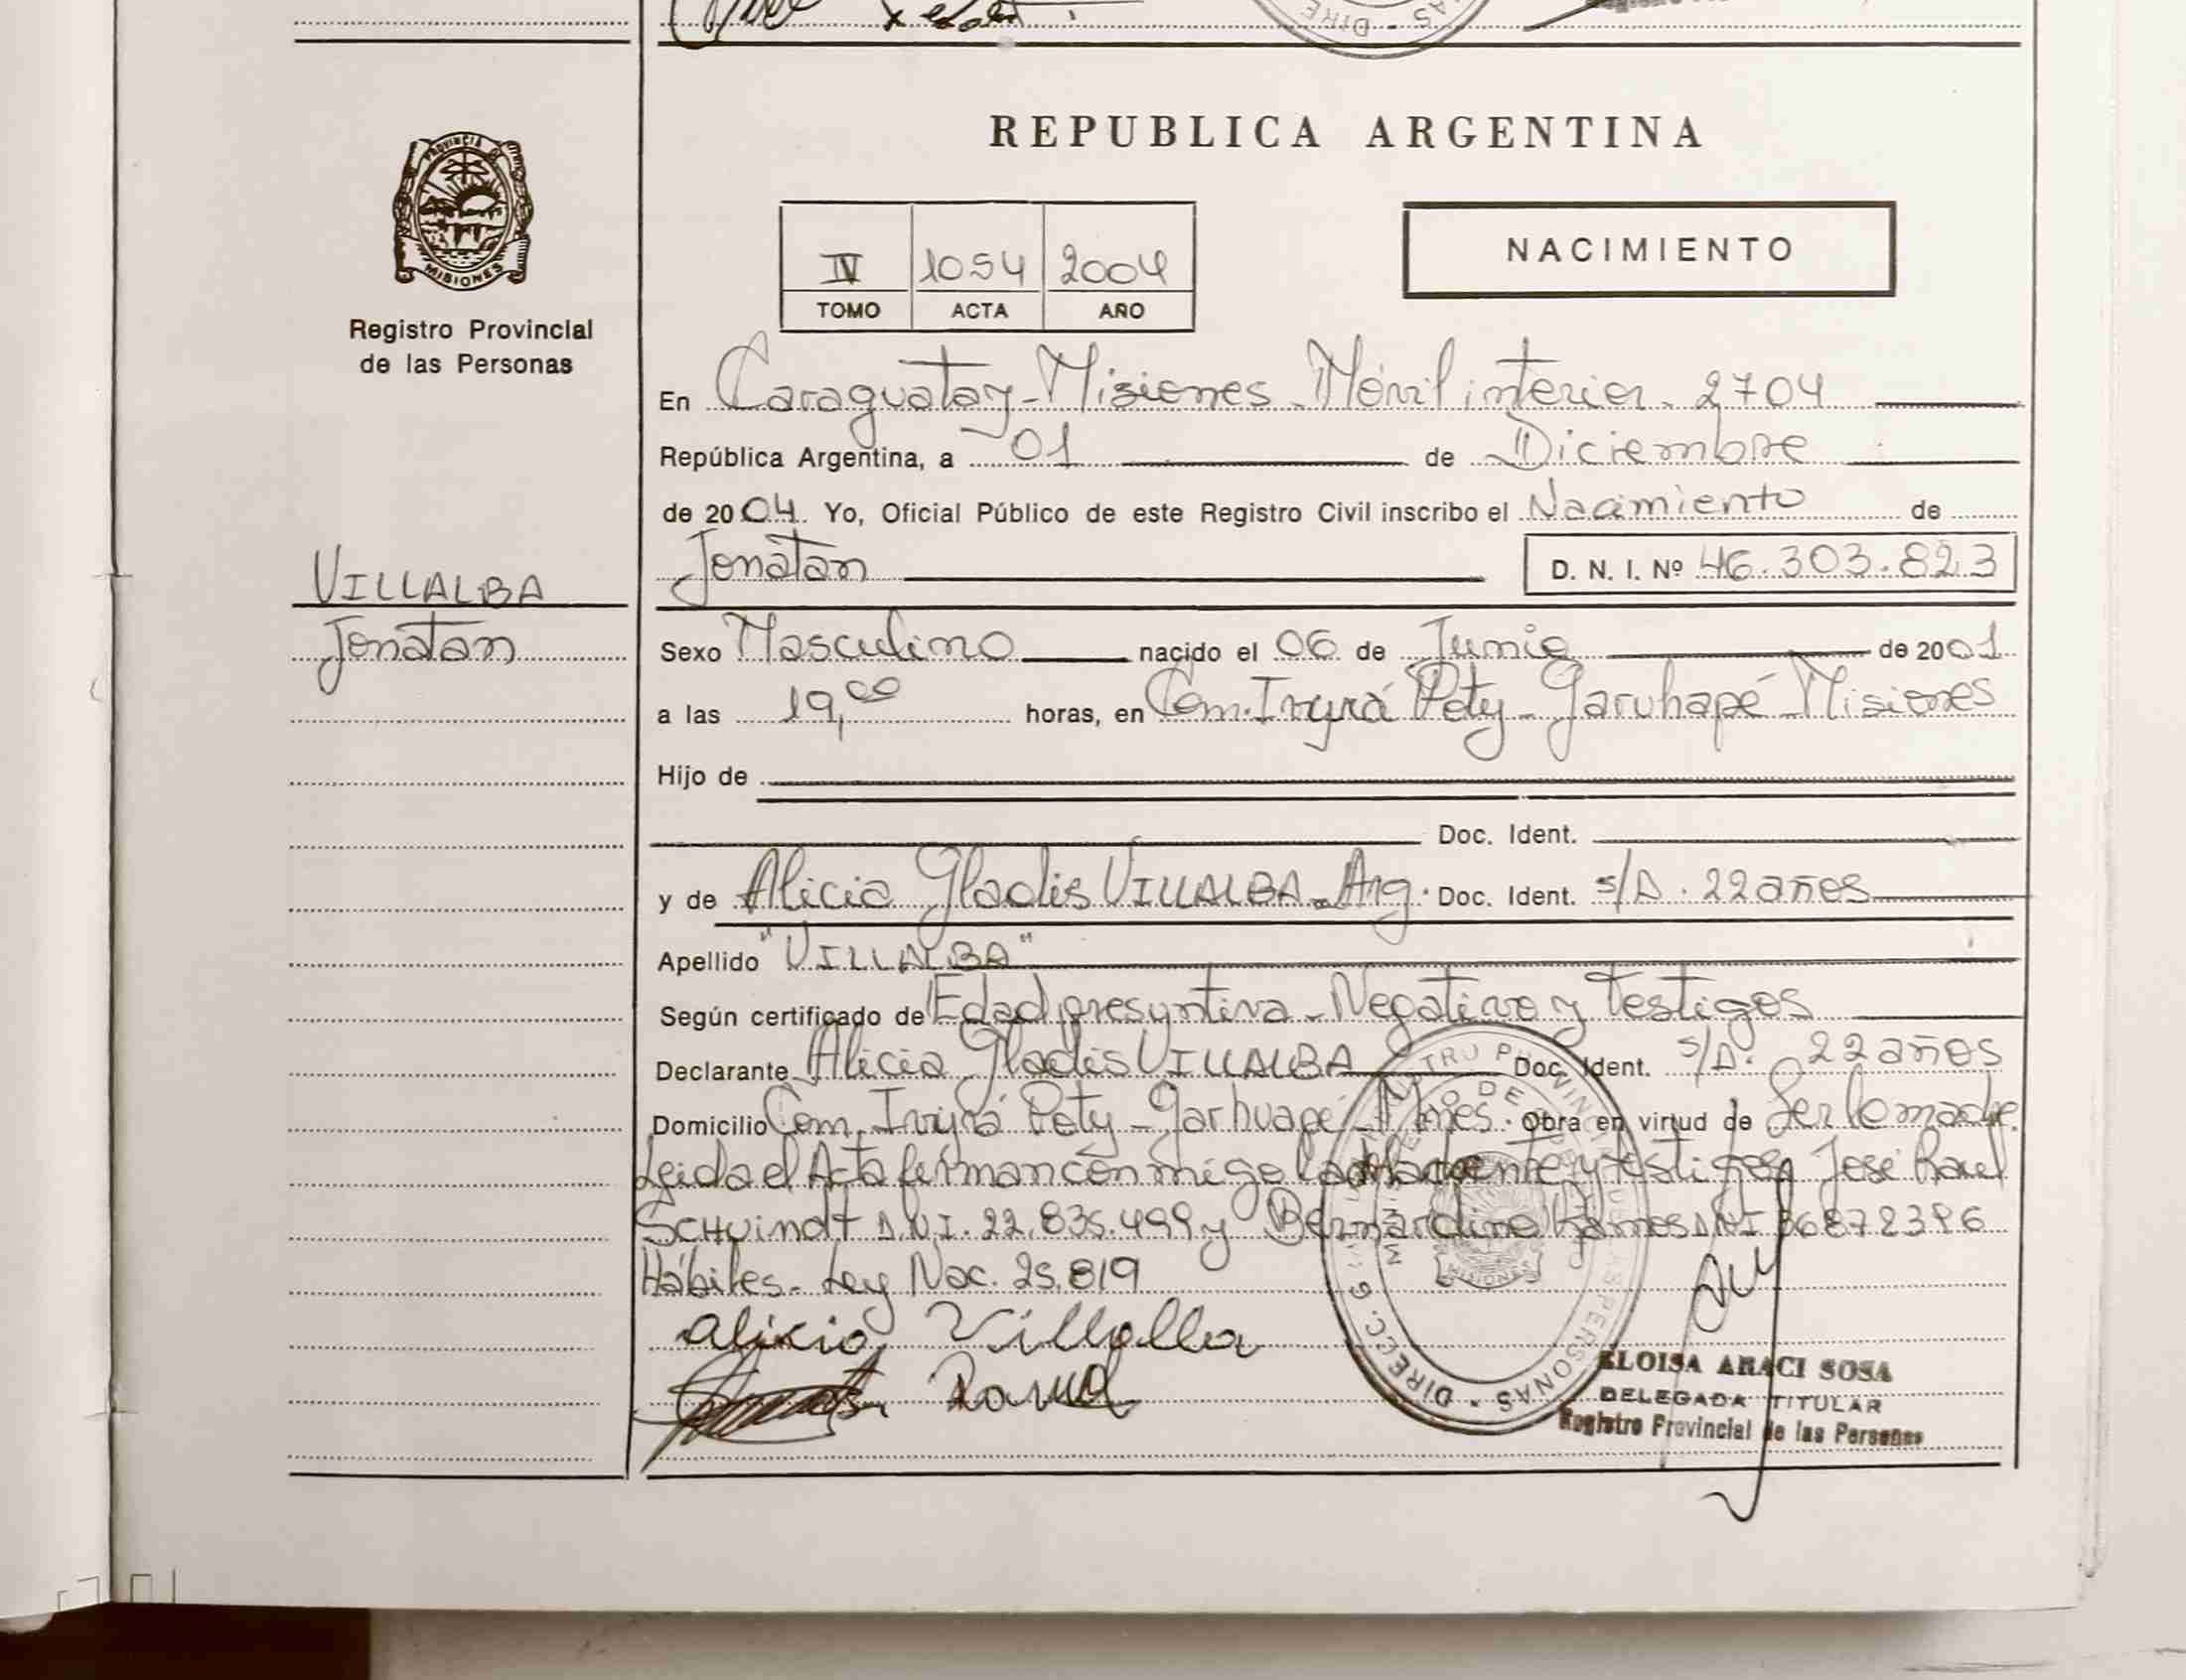 REPUBLICA ARGENTINA
PROVINCIA DE
MISIONES
Registro Provincial
de las Personas
IV 1054 2004
TOMO ACTA AÑO
NACIMIENTO
En Caraguatay - Misiones - Móvil interior - 2704
República Argentina, a 01 de Diciembre
de 2004. Yo, Oficial Público de este Registro Civil inscribo el Nacimiento de
Jonatan D. N. I. Nº 46.303.823
VILLALBA
Jonatan
Sexo Masculino nacido el 06 de Junio de 2001
a las 19,00 horas, en Com. Ivyrá Poty - Garuhapé Misiones
Hijo de
Doc. Ident.
y de Alicia Gladis VILLALBA - Arg. Doc. Ident. s/D. 22 años
Apellido "VILLALBA"
Según certificado de Edad presuntiva - Negativo y Testigos
Declarante Alicia Gladis VILLALBA Doc. Ident. s/D. 22 años
Domicilio Com. Ivyrá Poty - Garhuapé - Mnes. Obra en virtud de Ser la madre.
Leida el Acta firman conmigo la declarante y testigos José Raul
Schvindt D.N.I. 22.835.499 y Bernardino DNI
Hábiles - Ley Nac. 25.819
alicia Villalba
Ramon
ELOISA ARACI SOSA
DELEGADA TITULAR
Registro Provincial de las Personas